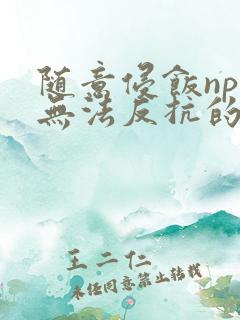 随意侵飯np
無法反抗的
王二仁
未经同意禁止转载